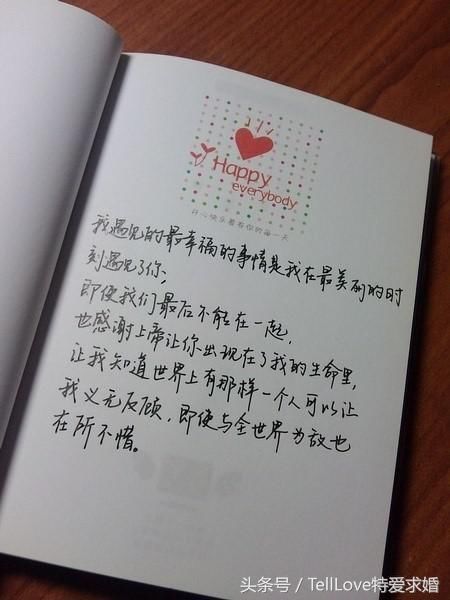 Happy
everybody
开心快乐着有你的每一天
我遇见的最幸福的事情是我在最美丽的时
刻遇见了你,
即使我们最后不能在一起,
也感谢上帝让你出现在了我的生命里,
让我知道世界上有那样一个人可以让
我义无反顾,即使与全世界为敌也
在所不惜。
头条号/TellLove特爱求婚